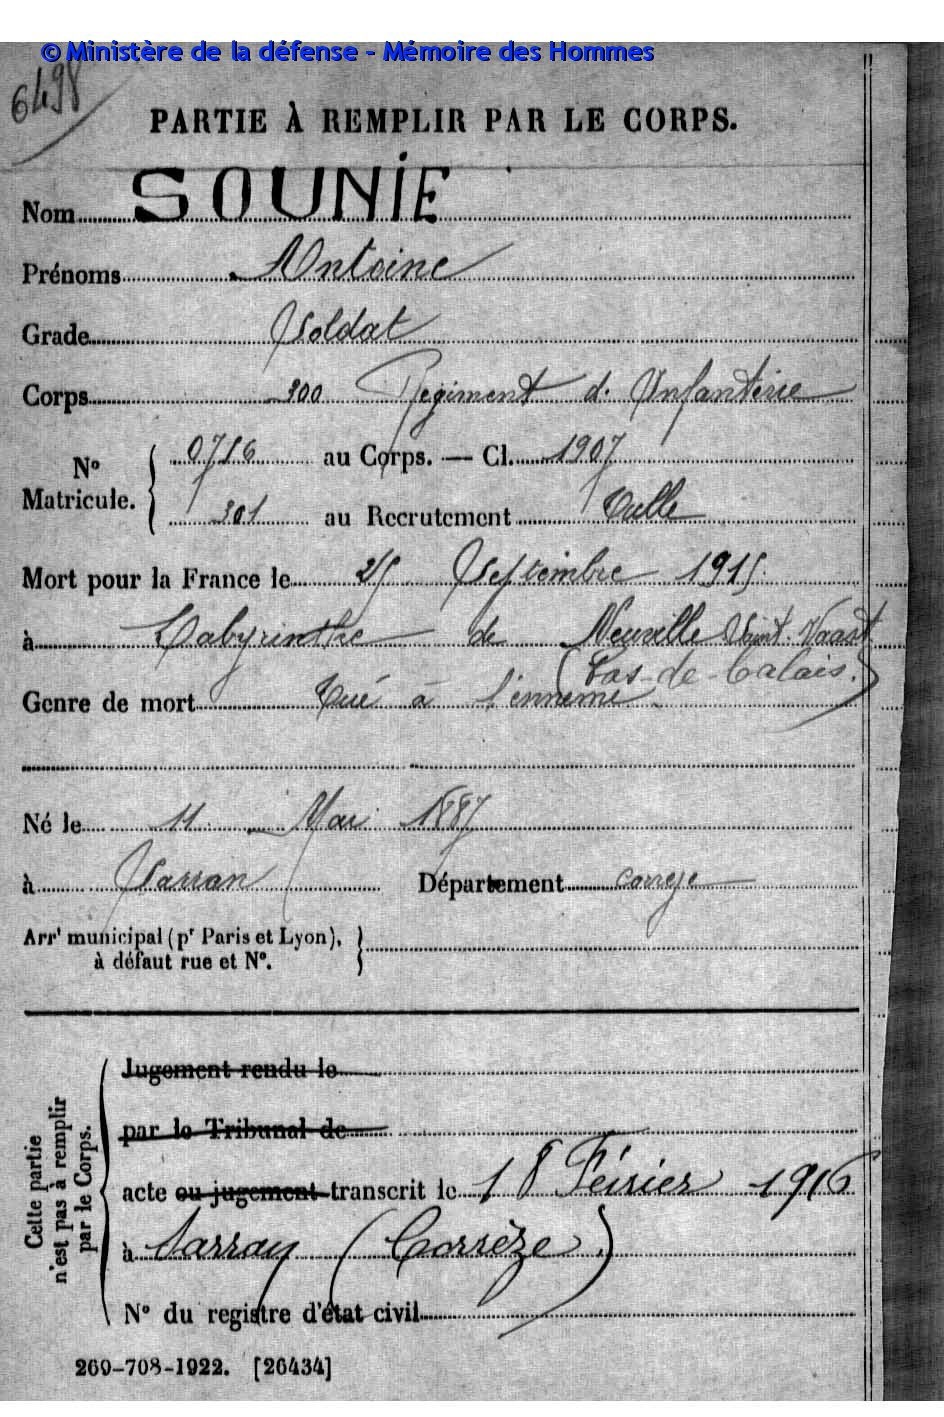 © Ministère de la défense - Mémoire des Hommes
6498
PARTIE À REMPLIR PAR LE CORPS.
Nom SOUNIE
Prénoms Antoine
Grade Soldat
Corps 300 Régiment d' Infanterie
N° Matricule. 0716 au Corps. — Cl. 1907
301 au Recrutement Tulle
Mort pour la France le 25 Septembre 1915
à Labyrinthe de Neuville Saint-Vaast
(Pas-de-Calais.)
Genre de mort Tué à l'ennemi
Né le 11 Mai 1887
à Sarran Département Correze
Arrt municipal (pr Paris et Lyon),
à défaut rue et N°.
Cette partie
n'est pas à remplir
par le Corps.
Jugement rendu le
par le Tribunal de
acte ou jugement transcrit le 18 Février 1916
à Sarran (Corrèze)
N° du registre d'état civil
269-708-1922. [26434]